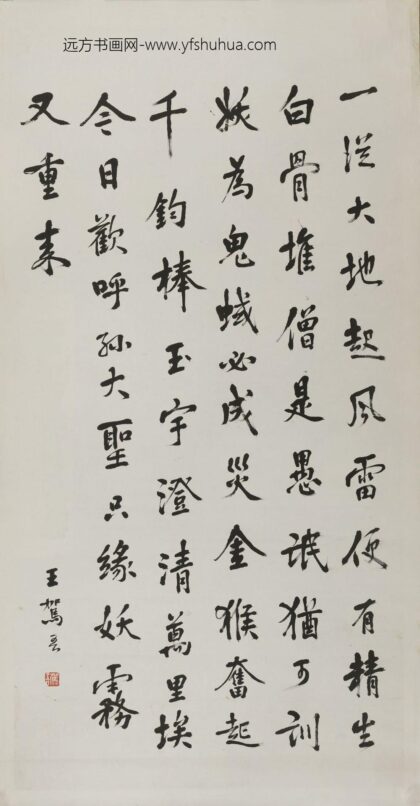 远方书画网-www.yfshuhua.com
一從大地起风雷便有精生
白骨堆僧是愚氓猶可訓
妖為鬼蜮必成災金猴奮起
千鈞棒玉宇澄清萬里埃
今日歡呼孙大聖只緣妖霧
又重来
王駕吾